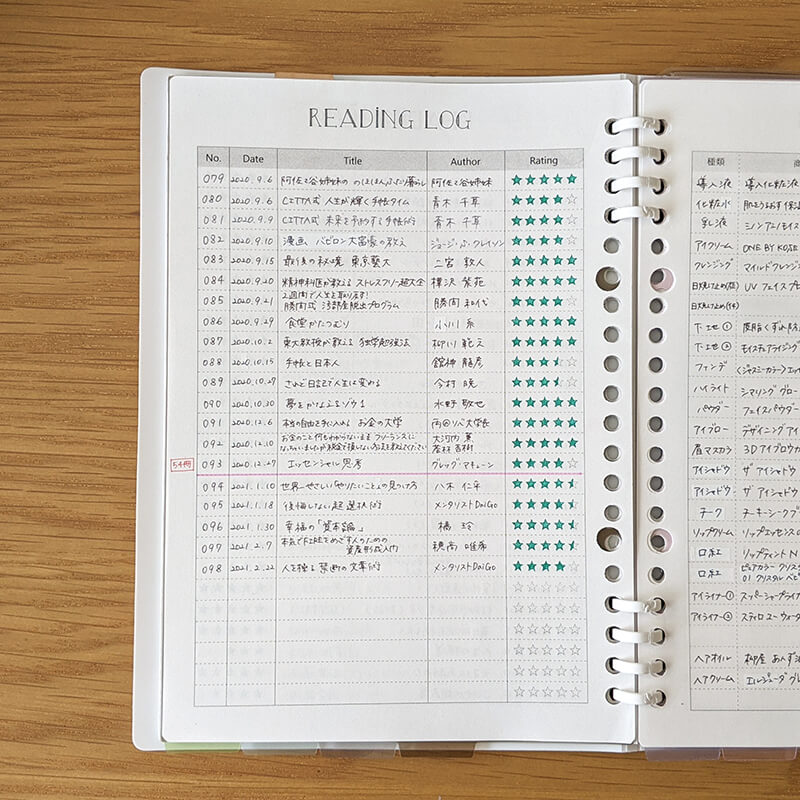 READING LOG
No. Date Title Author Rating
079 2020.9.6 阿佐ヶ谷姉妹の のほほんふたり暮らし 阿佐ヶ谷姉妹
080 2020.9.6 CITTA式 人生が輝く手帳タイム 青木 千草
081 2020.9.9 CITTA式 未来を予約する手帳術 青木 千草
082 2020.9.10 漫画 バビロン大富豪の教え ジョージ・S・クレイソン
083 2020.9.15 最後の秘境 東京藝大 二宮 敦人
084 2020.9.20 精神科医が教える ストレスフリー超大全 樺沢 紫苑
085 2020.9.21 2週間で人生を取り戻す!
勝間式 汚部屋脱出プログラム 勝間 和代
086 2020.9.29 食堂かたつむり 小川 糸
087 2020.10.2 東大教授が教える 独学勉強法 柳川 範之
088 2020.10.15 手帳と日本人 舘神 龍彦
089 2020.10.27 されど日記で人生は変わる 今村 暁
090 2020.10.30 夢をかなえるゾウ1 水野 敬也
091 2020.12.6 本当の自由を手に入れる お金の大学 両@リベ大学長
092 2020.12.10 お金のこと何もわからないまま フリーランスに
なっちゃいましたが税金で損しない方法を教えてください 大河内 薫
若林 杏樹
54冊 093 2020.12.27 エッセンシャル思考 グレッグ・マキューン
094 2021.1.10 世界一やさしい「やりたいこと」の見つけ方 八木 仁平
095 2021.1.18 後悔しない超選択術 メンタリストDaiGo
096 2021.1.30 幸福の「資本論」 橘 玲
097 2021.2.7 本気でFIREをめざす人のための
資産形成入門 穂高 唯希
098 2021.2.22 人を操る禁断の文章術 メンタリストDaiGo
種類 商
導入液 導入化粧液
化粧水 肌
乳液
アイクリーム ONE BY KOSE
クレンジング マイルドクレンジ
日焼け止め(顔) UV フェイスプロ
日焼け止め(体)
下地① 皮脂くずれ防
下地② モイスチュアライジング
ファンデ <ジャスミーカラー>エッセ
ハイライト シマリング グロー
パウダー フェイスパウダー
アイブロー デザイニング アイ
眉マスカラ 3Dアイブロウカ
アイシャドウ ザ アイシャドウ
アイシャドウ ザ アイシャドウ
チーク チーキーシークブ
リップクリーム リップエッセンス
口紅 リップティント N
口紅 ピュアカラー クリスタル
01 クリスタル ベビ
アイライナー① スーパーシャープライ
アイライナー② スティロ ユー ウォータ
ヘアオイル 柳屋 あんず油
ヘアクリーム エルジューダ